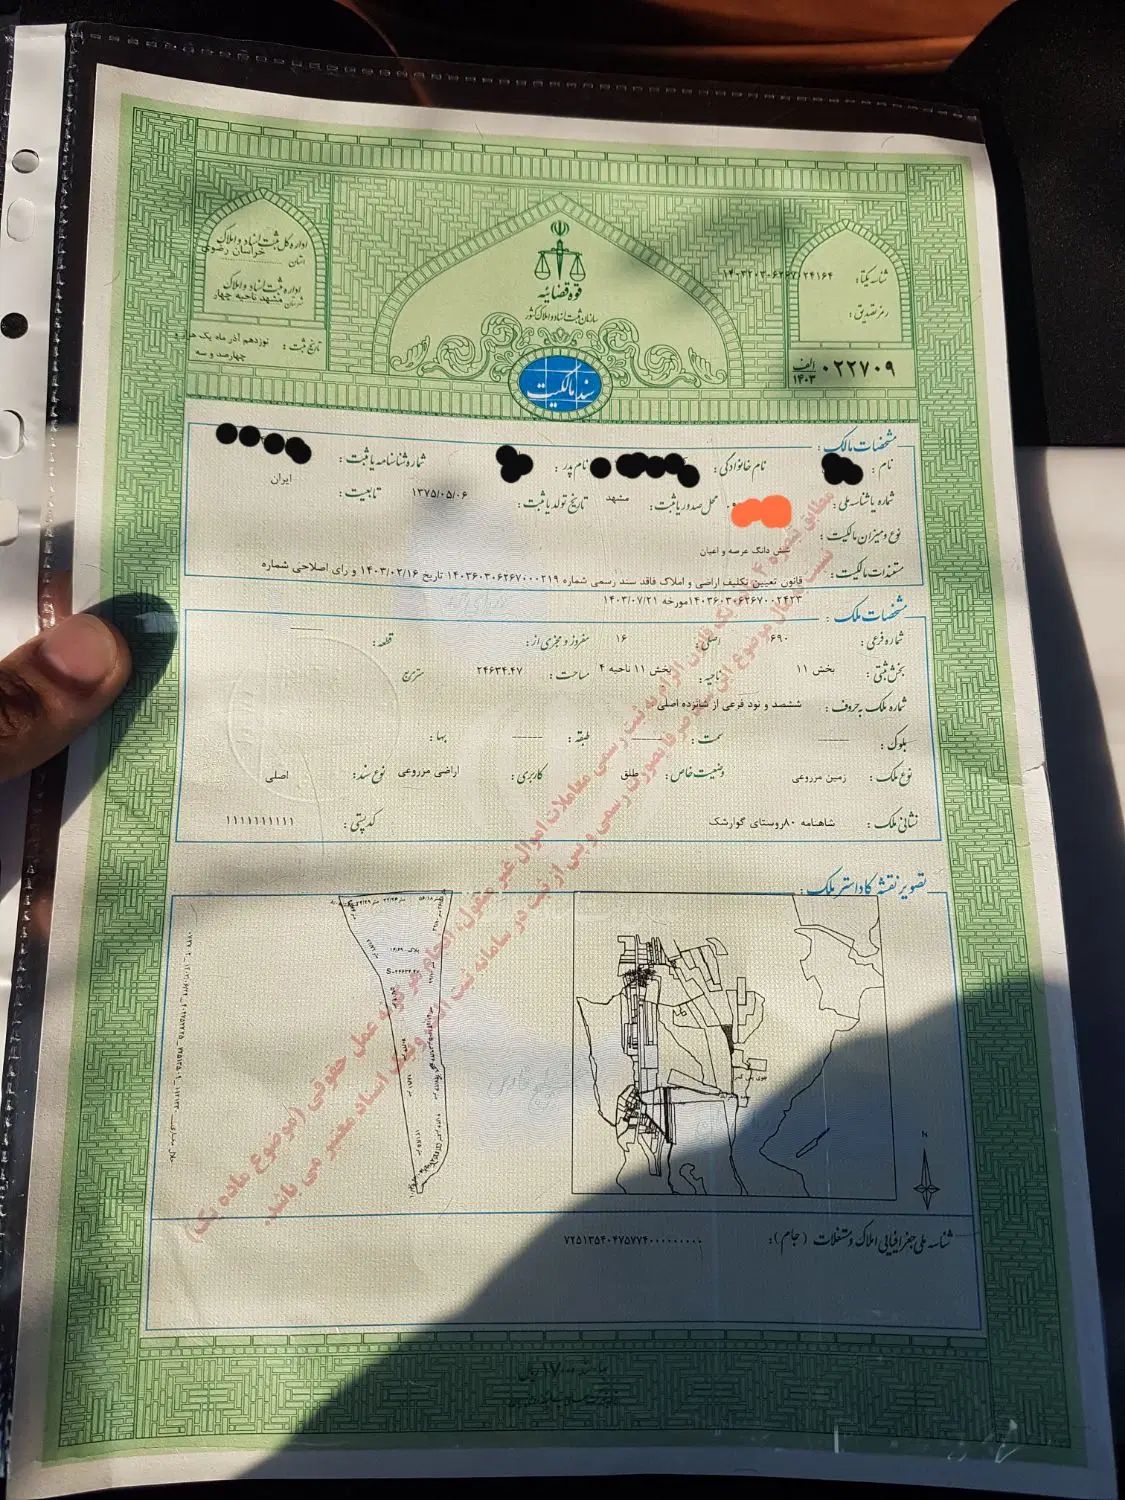 اداره کل ثبت اسناد و املاک
استان خراسان رضوی
اداره ثبت اسناد و املاک
شهرستان مشهد ناحیه چهار
تاریخ ثبت : نوزدهم آذر ماه یک هزار و
چهارصد و سه
قوه قضائیه
سازمان ثبت اسناد و املاک کشور
سند مالکیت
شناسه یکتا :
رمز تصدیق :
۰۲۲۷۰۹ الف ۱۴۰۳
مشخصات مالک :
نام : نام خانوادگی : نام پدر : شماره شناسنامه یا ثبت :
شماره یا شناسه ملی : محل صدور یا ثبت : مشهد تاریخ تولد یا ثبت : ۱۳۷۵/۰۵/۰۶ تابعیت : ایران
نوع و میزان مالکیت : شش دانگ عرصه و اعیان
مستندات مالکیت : قانون تعیین تکلیف اراضی و املاک فاقد سند رسمی شماره ۱۴۰۳۶۰۳۰۶۲۶۷۰۰۰۲۱۹ تاریخ ۱۴۰۳/۰۲/۱۶ و رای اصلاحی شماره
۱۴۰۳۶۰۳۰۶۲۶۷۰۰۲۴۲۳مورخه ۱۴۰۳/۰۷/۲۱
مشخصات ملک :
شماره فرعی : ۶۹۰ اصلی : ۱۶ مفروز و مجزی از : قطعه :
بخش ثبتی : بخش ۱۱ ناحیه : بخش ۱۱ ناحیه ۴ مساحت : ۲۴۶۳۴.۴۷ مترمربع
شماره ملک به حروف : ششصد و نود فرعی از شانزده اصلی
بلوک : سمت : طبقه : بها :
نوع ملک : زمین مزروعی وضعیت خاص : طلق کاربری : اراضی مزروعی نوع سند : اصلی
نشانی ملک : شاهنامه ۸۰روستای گوارشک کدپستی : ۱۱۱۱۱۱۱۱۱۱
مطابق تبصره ۴ ماده یک قانون الزام به ثبت رسمی معاملات اموال غیر منقول، انجام هر گونه عمل حقوقی (موضوع ماده یک)
نسبت به مال موضوع این سند صرفا بصورت رسمی و پس از ثبت در سامانه ثبت الکترونیک اسناد معتبر می باشد.
تصویر نقشه کاداستر ملک :
N
شناسه ملی جغرافیایی املاک و مستغلات (جام) : ۷۲۵۱۳۵۴۰۴۷۵۷۷۴۰۰۰۰۰۰۰۰۰